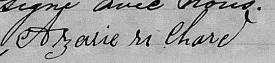 signé avec nous.
Azarie richard